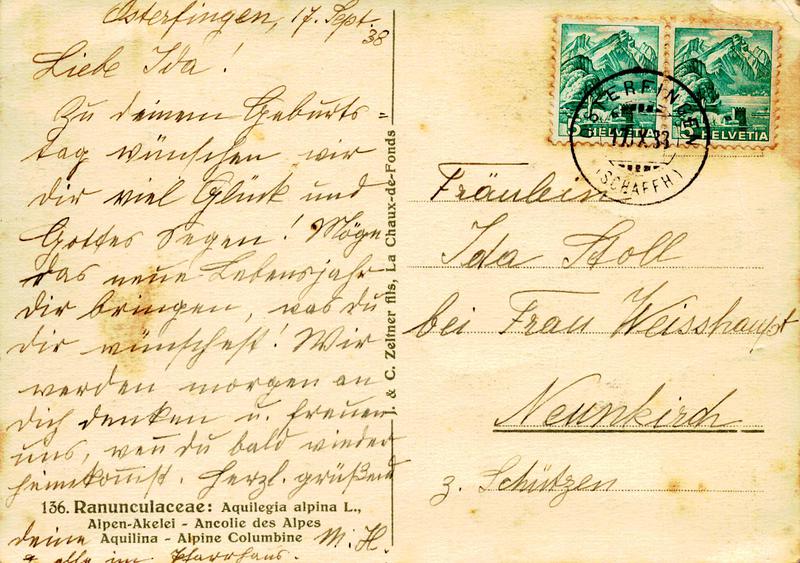 Osterfingen, 17. Sept. 38
Liebe Ida!
Zu deinem Geburts=
tag wünschen wir
dir viel Glück und
Gottes Segen! Möge
das neue Lebensjahr
dir bringen, was du
dir wünschest! Wir
werden morgen an
dich denken u. freuen
uns, wenn du bald wieder
heimkommst. Herzl. grüßend
136. Ranunculaceae: Aquilegia alpina L.,
Alpen-Akelei - Ancolie des Alpes
Aquilina - Alpine Columbine
deine M. H.
+ alle im Pfarrhaus.
J. & C. Zelfner fils, La Chaux-de-Fonds
HELVETIA
5 HELVETIA
OSTERFINGEN
17.IX.38
(SCHAFFH)
Fräulein
Ida Stoll
bei Frau Weisshaupt
Neunkirch
z. Schützen